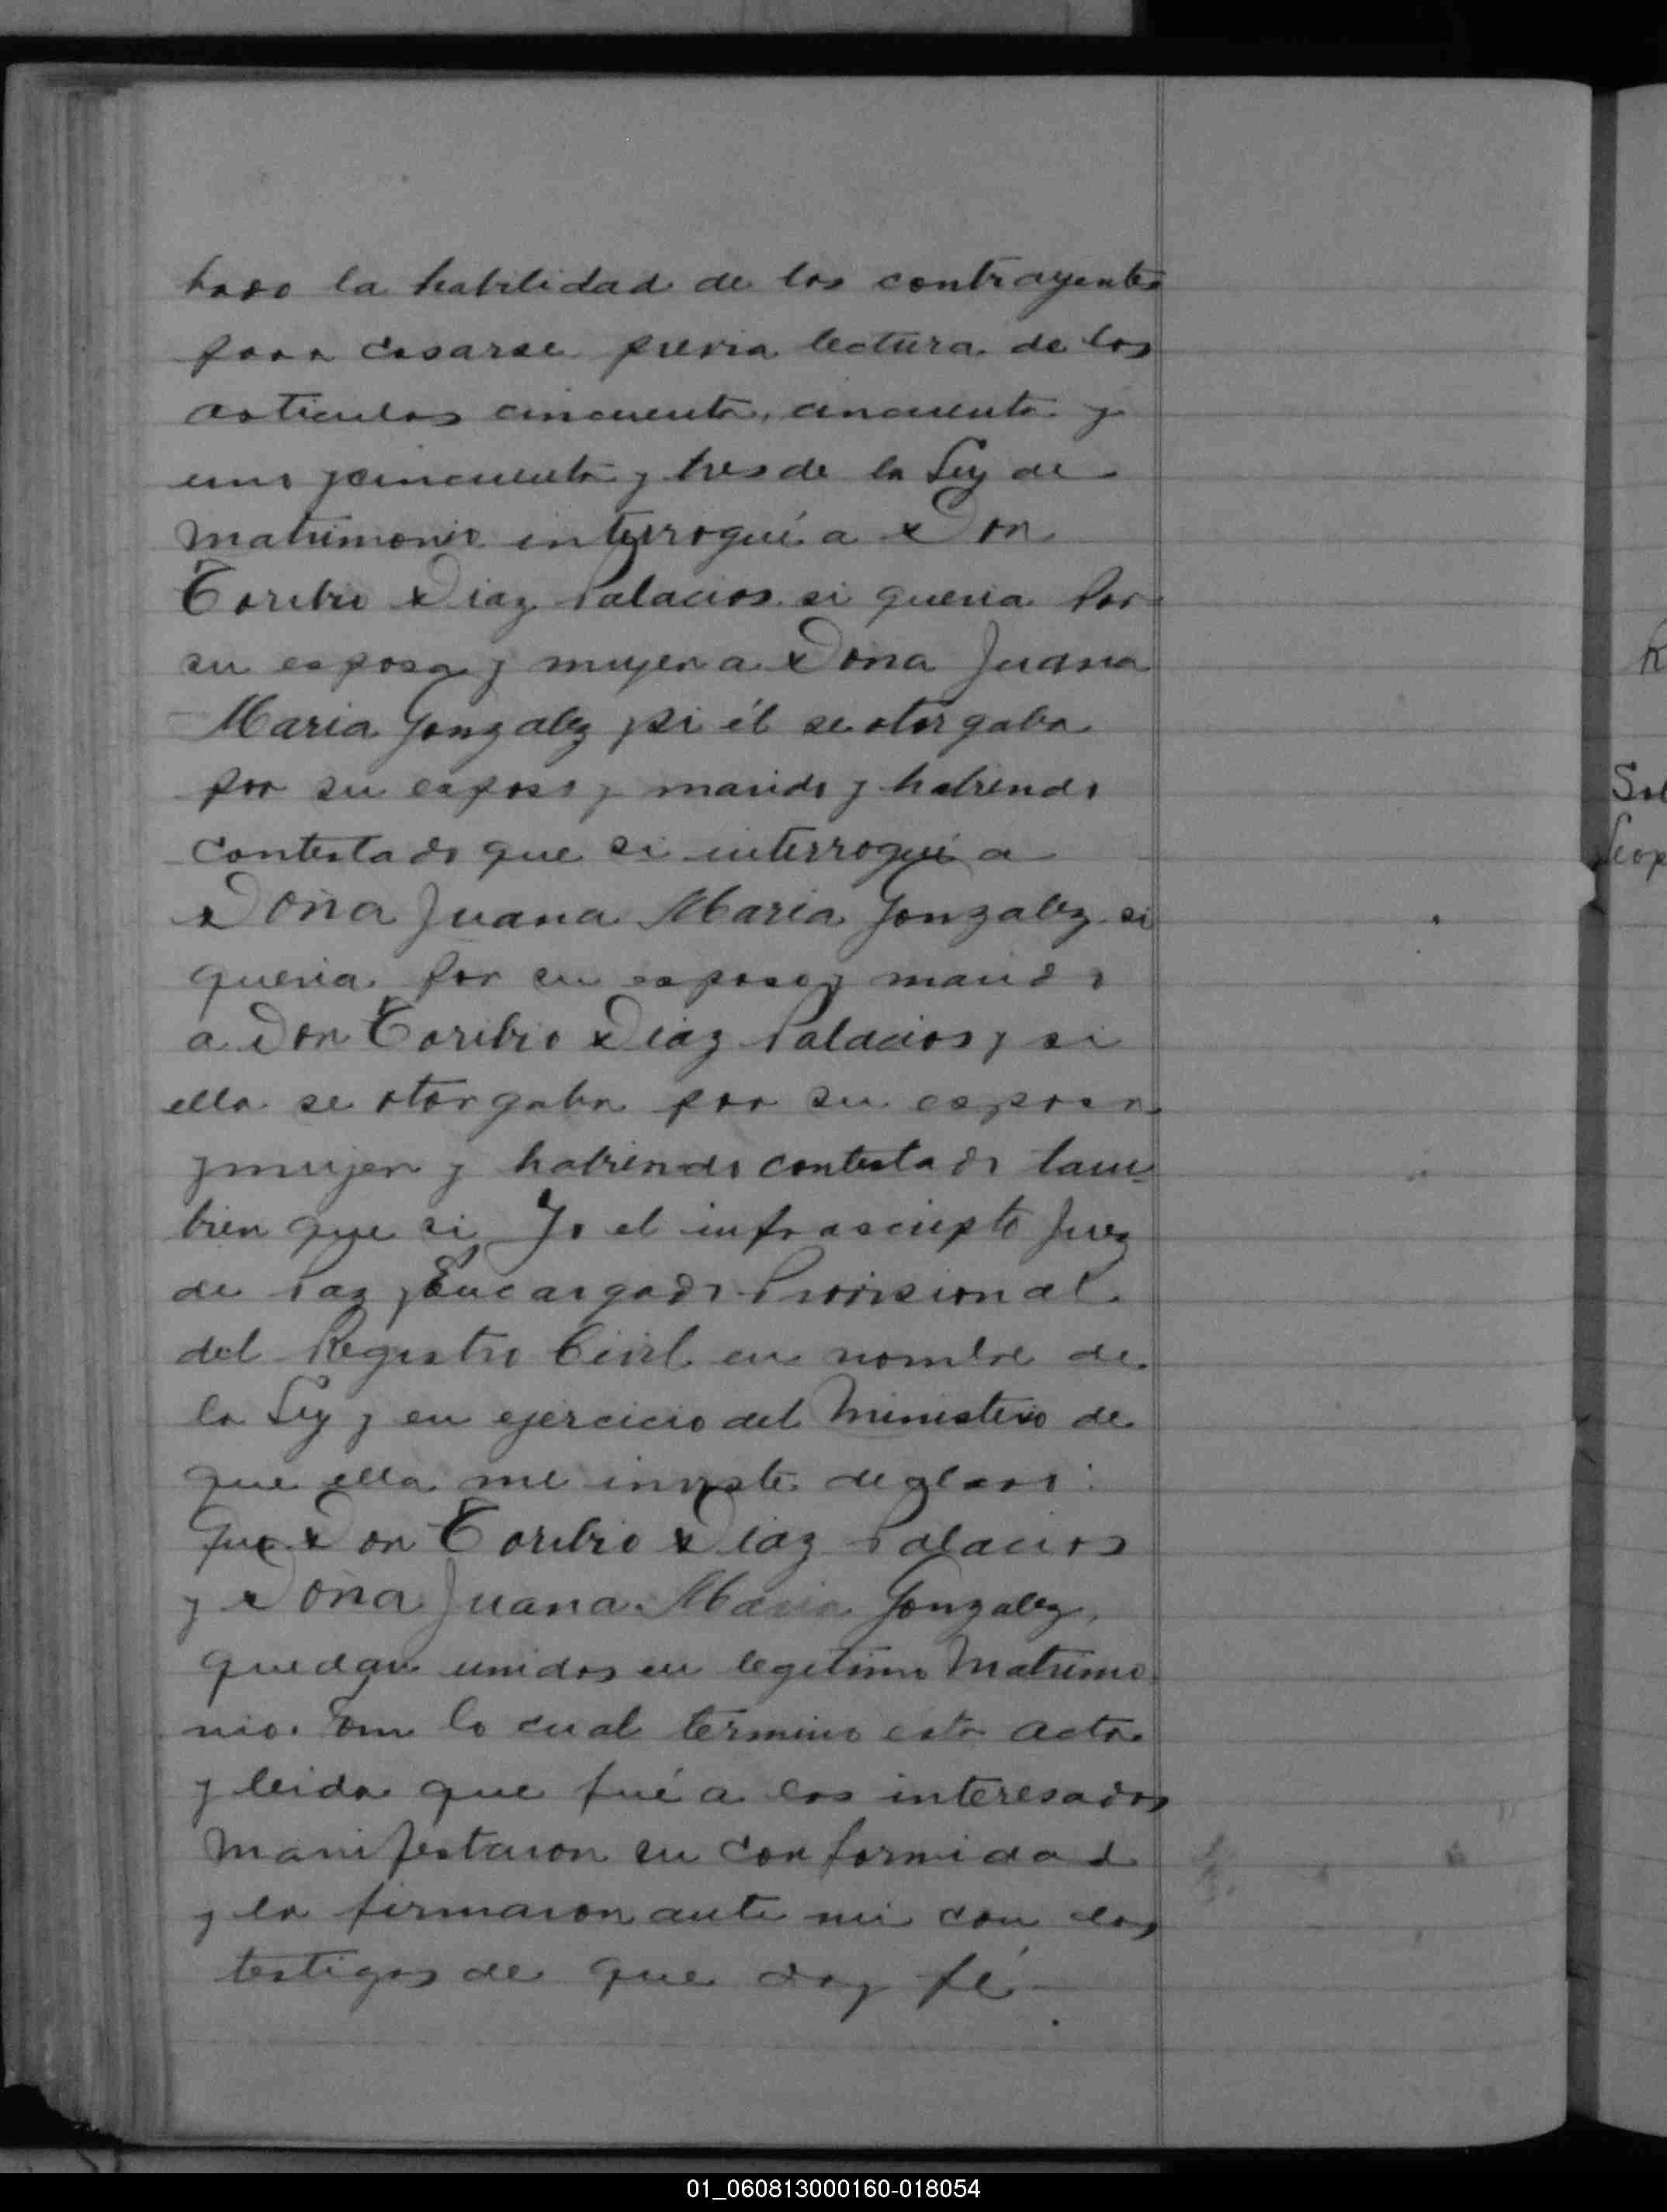 bado la habilidad de los contrayentes
para casarse previa lectura de los
articulos cincuenta, cincuenta y
uno y cincuenta y tres de la Ley de
Matrimonio interrogué a Don
Toribio Diaz Palacios si queria por
su esposa y mujer a Doña Juana
Maria Gonzalez y si él se otorgaba
por su esposo y marido y habiendo
contestado que si interrogué a
Doña Juana Maria Gonzalez si
queria por su esposo y marido
a Don Toribio Diaz Palacios y si
ella se otorgaba por su esposa
y mujer y habiendo contestado tam-
bien que si Yo el infrascripto Juez
de Paz y Encargado Provisional
del Registro Civil en nombre de
la Ley y en ejercicio del Ministerio de
que ella me inviste declaro:
Que Don Toribio Diaz Palacios
y Doña Juana Maria Gonzalez,
quedan unidos en legitimo Matrimo
nio. Con lo cual termino esta acta
y leida que fué a los interesados
manifestaron su conformidad
y la firmaron ante mi con los
testigos de que doy fé
01_060813000160-018054